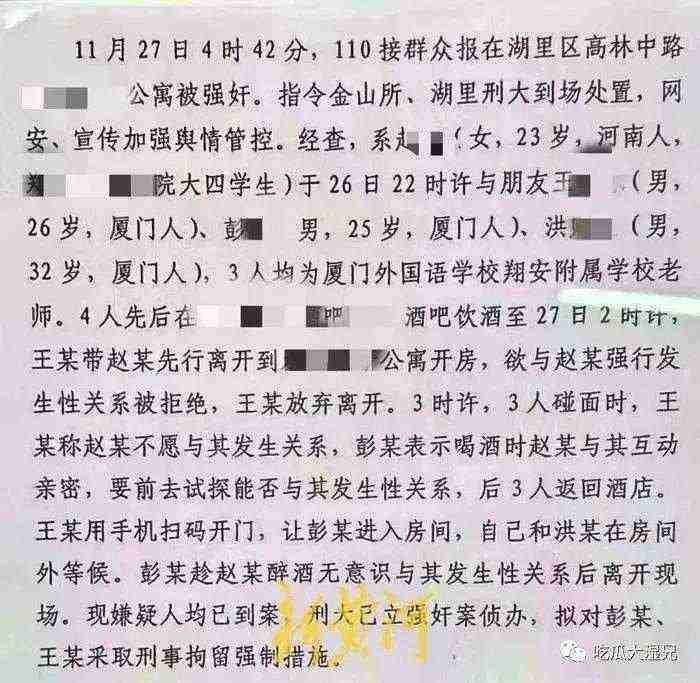 11月27日4时42分，110接群众报在湖里区高林中路
公寓被强奸。指令金山所、湖里刑大到场处置，网
安、宣传加强舆情管控。经查，系赵（女，23岁，河南人，
翔院大四学生）于26日22时许与朋友王（男，
26岁，厦门人）、彭男，25岁，厦门人）、洪（男，
32岁，厦门人），3人均为厦门外国语学校翔安附属学校老
师。4人先后在吧酒吧饮酒至27日2时许，
王某带赵某先行离开到公寓开房，欲与赵某强行发
生性关系被拒绝，王某放弃离开。3时许，3人碰面时，王
某称赵某不愿与其发生关系，彭某表示喝酒时赵某与其互动
亲密，要前去试探能否与其发生性关系，后3人返回酒店。
王某用手机扫码开门，让彭某进入房间，自己和洪某在房间
外等候。彭某趁赵某醉酒无意识与其发生性关系后离开现
场。现嫌疑人均已到案，刑大已立强奸案侦办，拟对彭某、
王某采取刑事拘留强制措施。
新黄河
吃瓜大湿兄